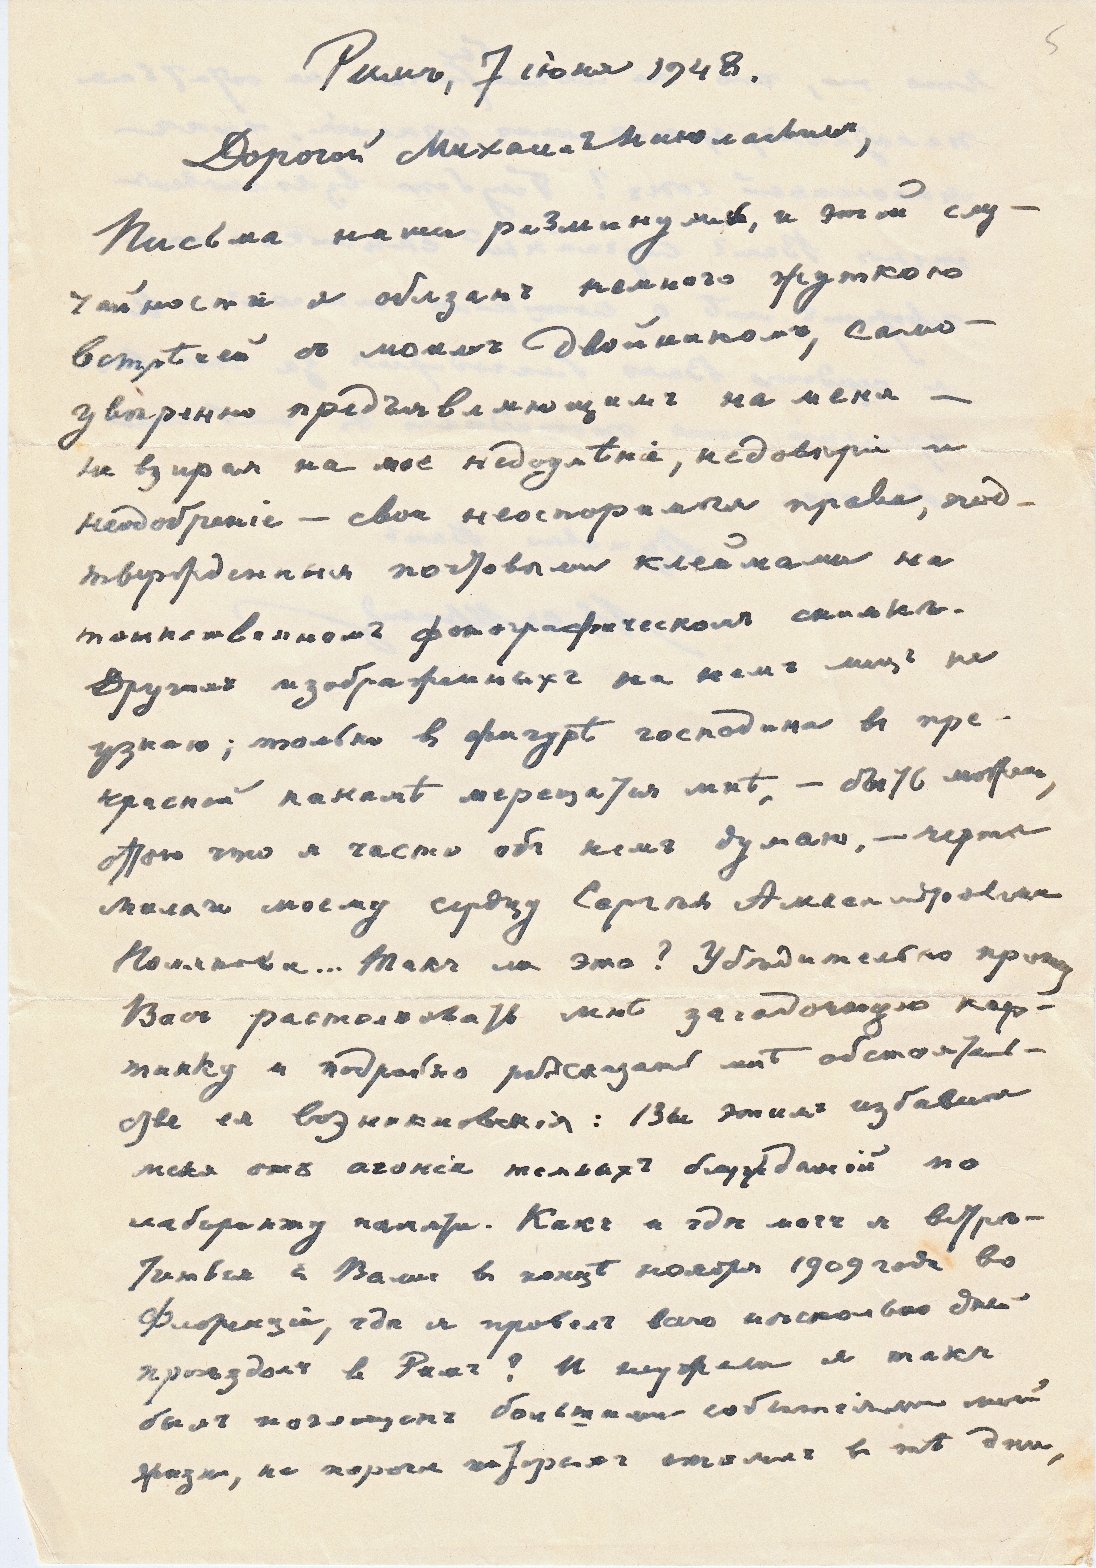 5
Римъ, 7 iюня 1948.
Дорогой Михаилъ Николаевичъ,
Письма наши разминулись, и этой слу-
чайности я обязанъ немного жуткою
встрѣчей съ моимъ двойникомъ, само-
увѣренно предъявляющимъ на меня —
не взирая на мое недоумѣнiе, недовѣрiе и
неодобренiе — свои неоспоримыя права, под-
твержденныя почтовыми клеймами на
таинственномъ фотографическомъ снимкѣ.
Другихъ изображенныхъ на немъ лицъ не
узнаю; только въ фигурѣ господина въ пре-
красной панамѣ мерещатся мнѣ, — быть можетъ,
оттого что я часто объ немъ думаю, — черты
милаго моему сердцу Сергѣя Александровича
Полякова... Такъ ли это? Убѣдительно прошу
Васъ растолковать мнѣ загадочную кар-
тинку и подробно разсказать мнѣ обстоятель-
ства ея возникновенiя: Вы этимъ избавите
меня отъ агонiи темныхъ блужданiй по
лабиринту памяти. Какъ и гдѣ могъ я встрѣ-
титься съ Вами въ концѣ ноября 1909 года во
Флоренцiи, гдѣ я провелъ всего нѣсколько дней
проѣздомъ въ Римъ? И неужели я такъ
былъ поглощенъ большими событiями моей
жизни, на порогѣ которыхъ стоялъ въ тѣ дни,